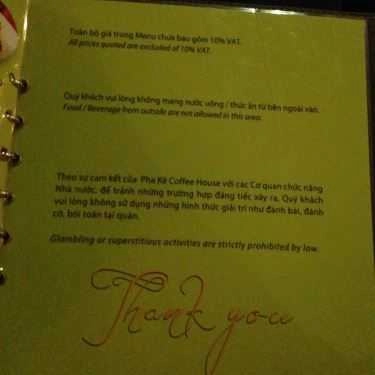 Toàn bộ giá trong Menu chưa bao gồm 10% VAT.
All prices quoted are excluded of 10% VAT.
Quý khách vui lòng không mang nước uống / thức ăn từ bên ngoài vào.
Food / Beverage from outside are not allowed in this area.
Theo sự cam kết của Pha Kê Coffee House với các Cơ quan chức năng
Nhà nước, để tránh những trường hợp đáng tiếc xảy ra, Quý khách
vui lòng không sử dụng những hình thức giải trí như đánh bài, đánh
cờ, bói toán tại quán.
Glambling or superstitious activities are strictly prohibited by law.
Thank you